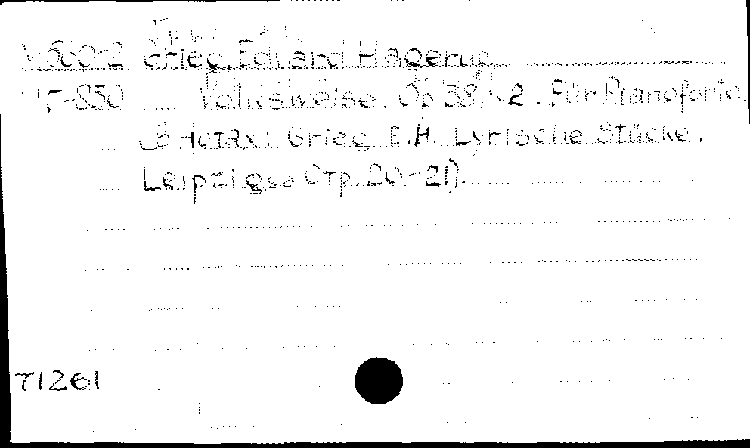 Grieg, Edvard Hagerup
-850 Volksweise. Op 38, 2. Für Pianoforte.
Grieg E.H. Lyrische Stücke.
Leipzig Стр. 20-21).
T1261